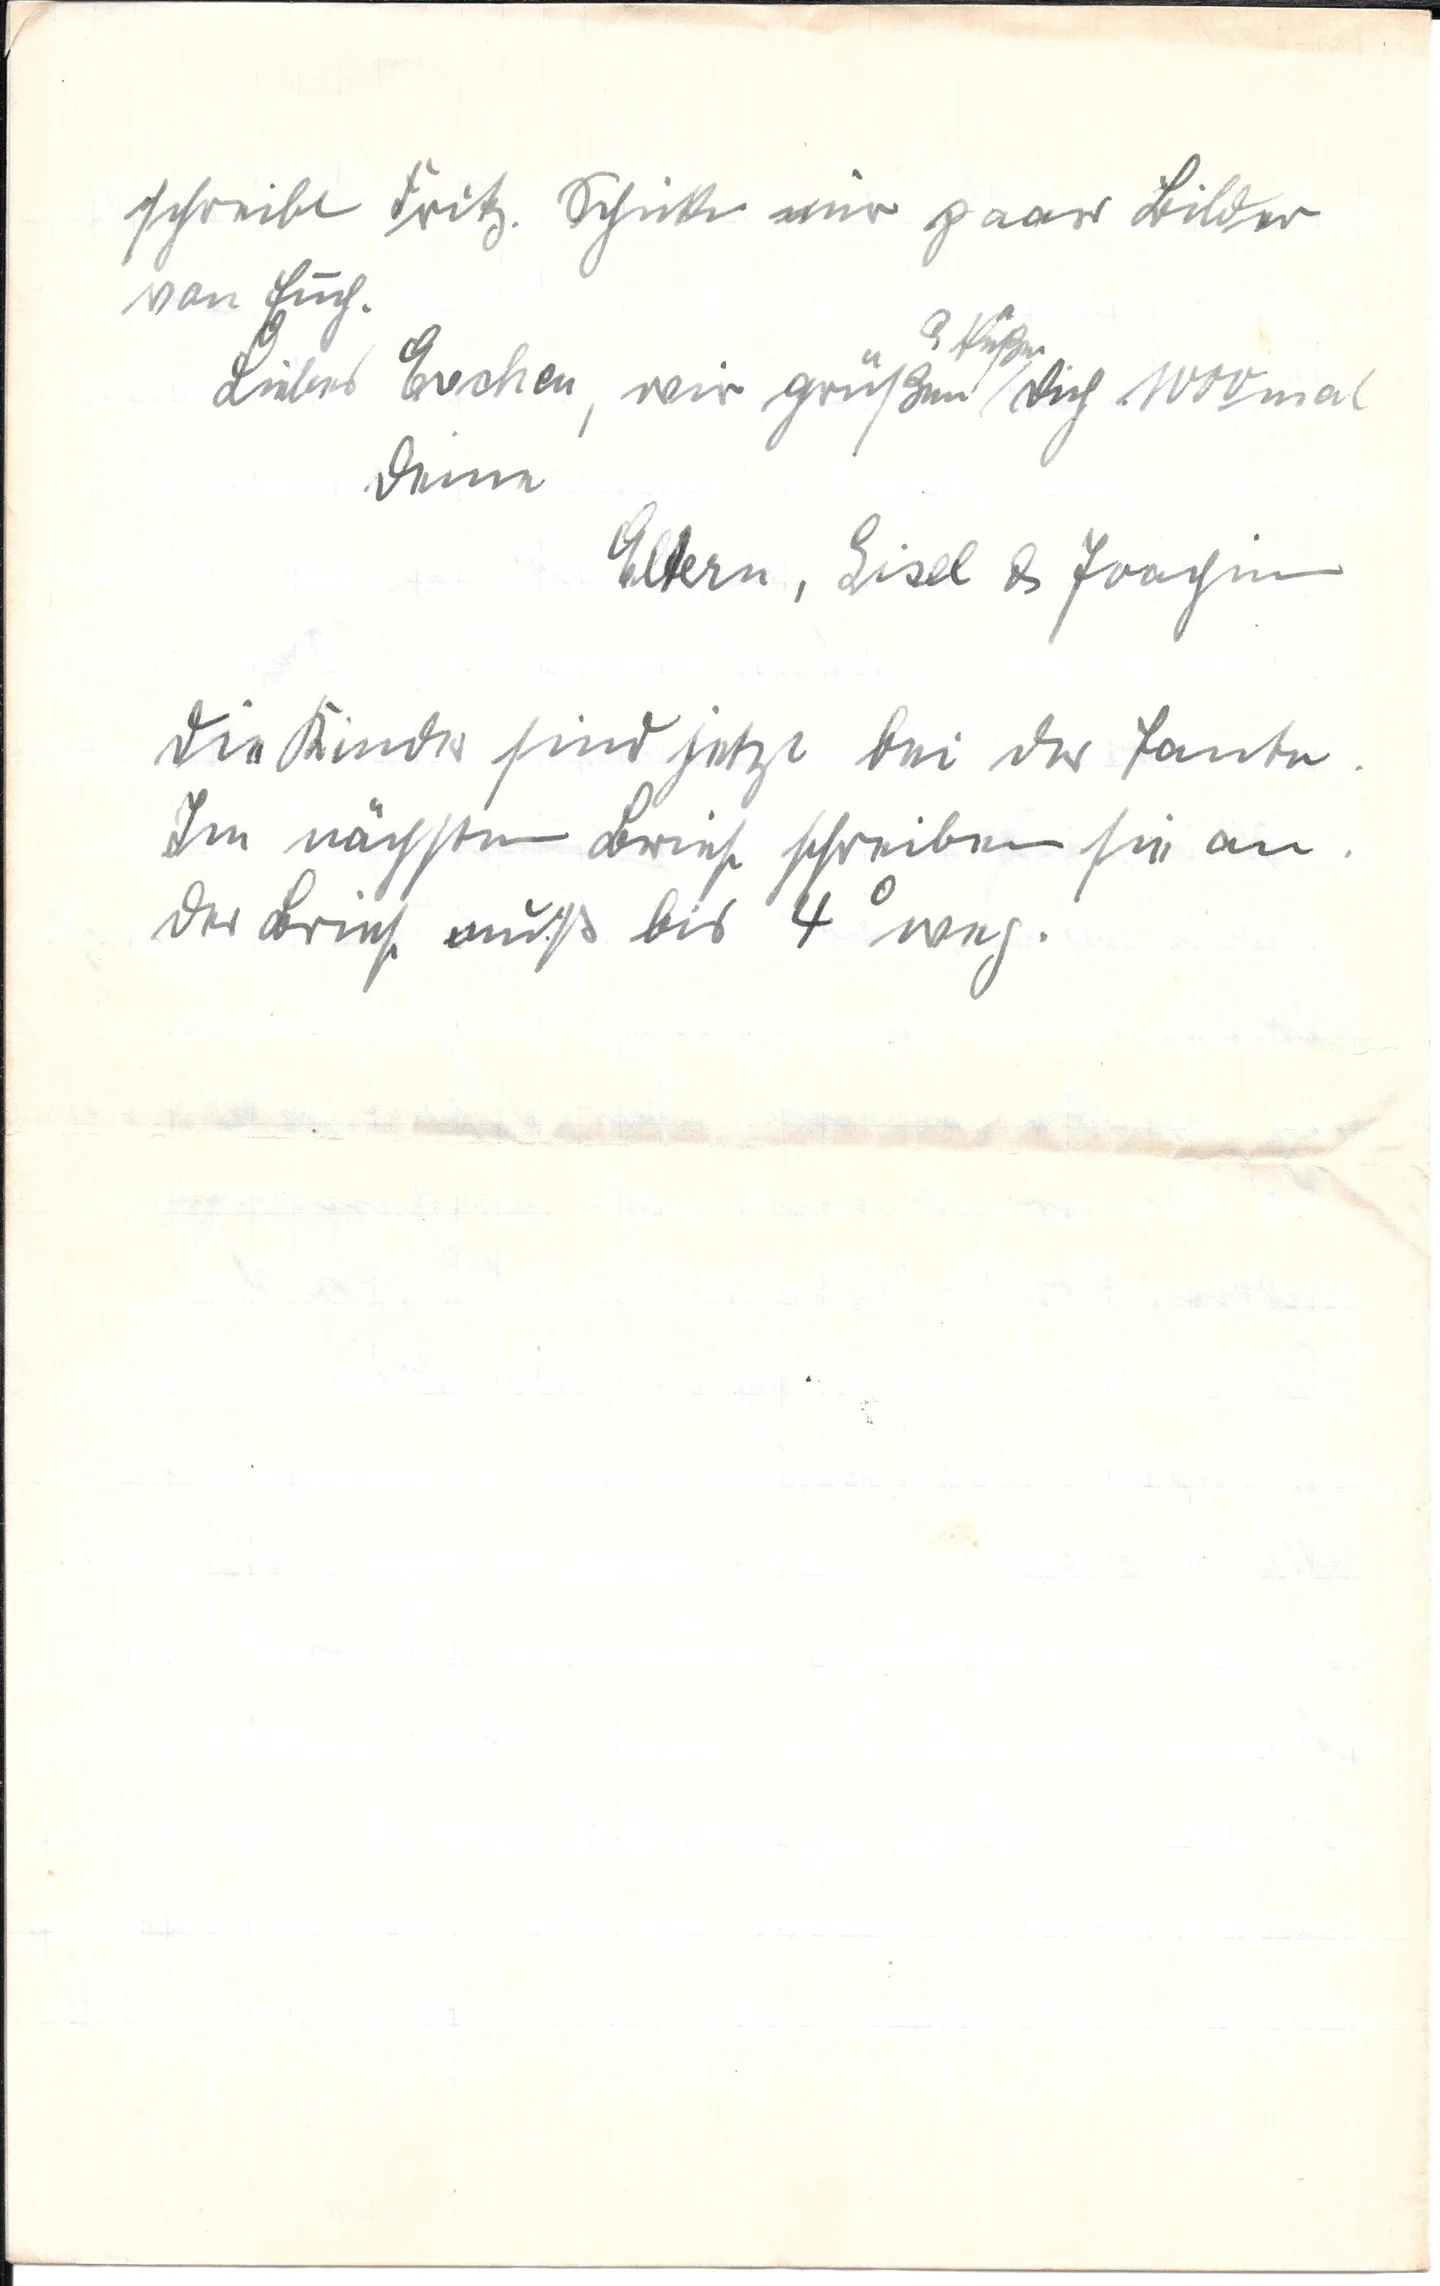 schreibt Fritz. Schicke mir paar Bilder
von Euch.
Liebes Evchen, wir grüßen & küßen Dich 1000mal
Deine
Eltern, Gisel & Joachim
Die Kinder sind jetzt bei der Tante.
Im nächsten Brief schreiben sie an.
Der Brief muß bis 4° weg.